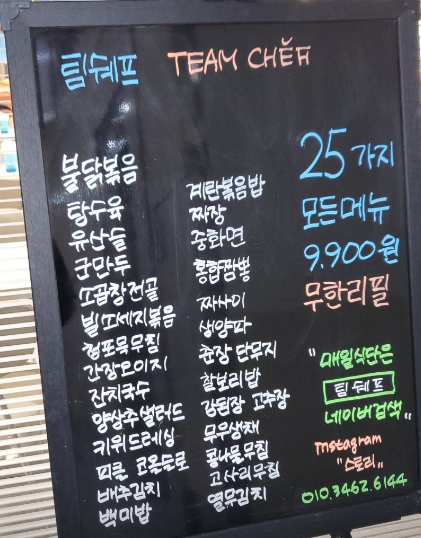 팀쉐프 TEAM CHEF
불닭볶음
탕수육
유산슬
군만두
소곱창전골
빌소세지볶음
청포묵무침
간장오이지
잔치국수
양상추샐러드
키위드레싱
피클 코울슬로
배추김치
백미밥
계란볶음밥
짜장
중화면
홍합짬뽕
짜사이
생양파
춘장 단무지
찰보리밥
강된장 고추장
무우생채
콩나물무침
고사리무침
열무김치
25가지
모든메뉴
9,900원
무한리필
"매일식단은
팀쉐프
네이버검색"
Instagram
"스토리"
010.3462.6144